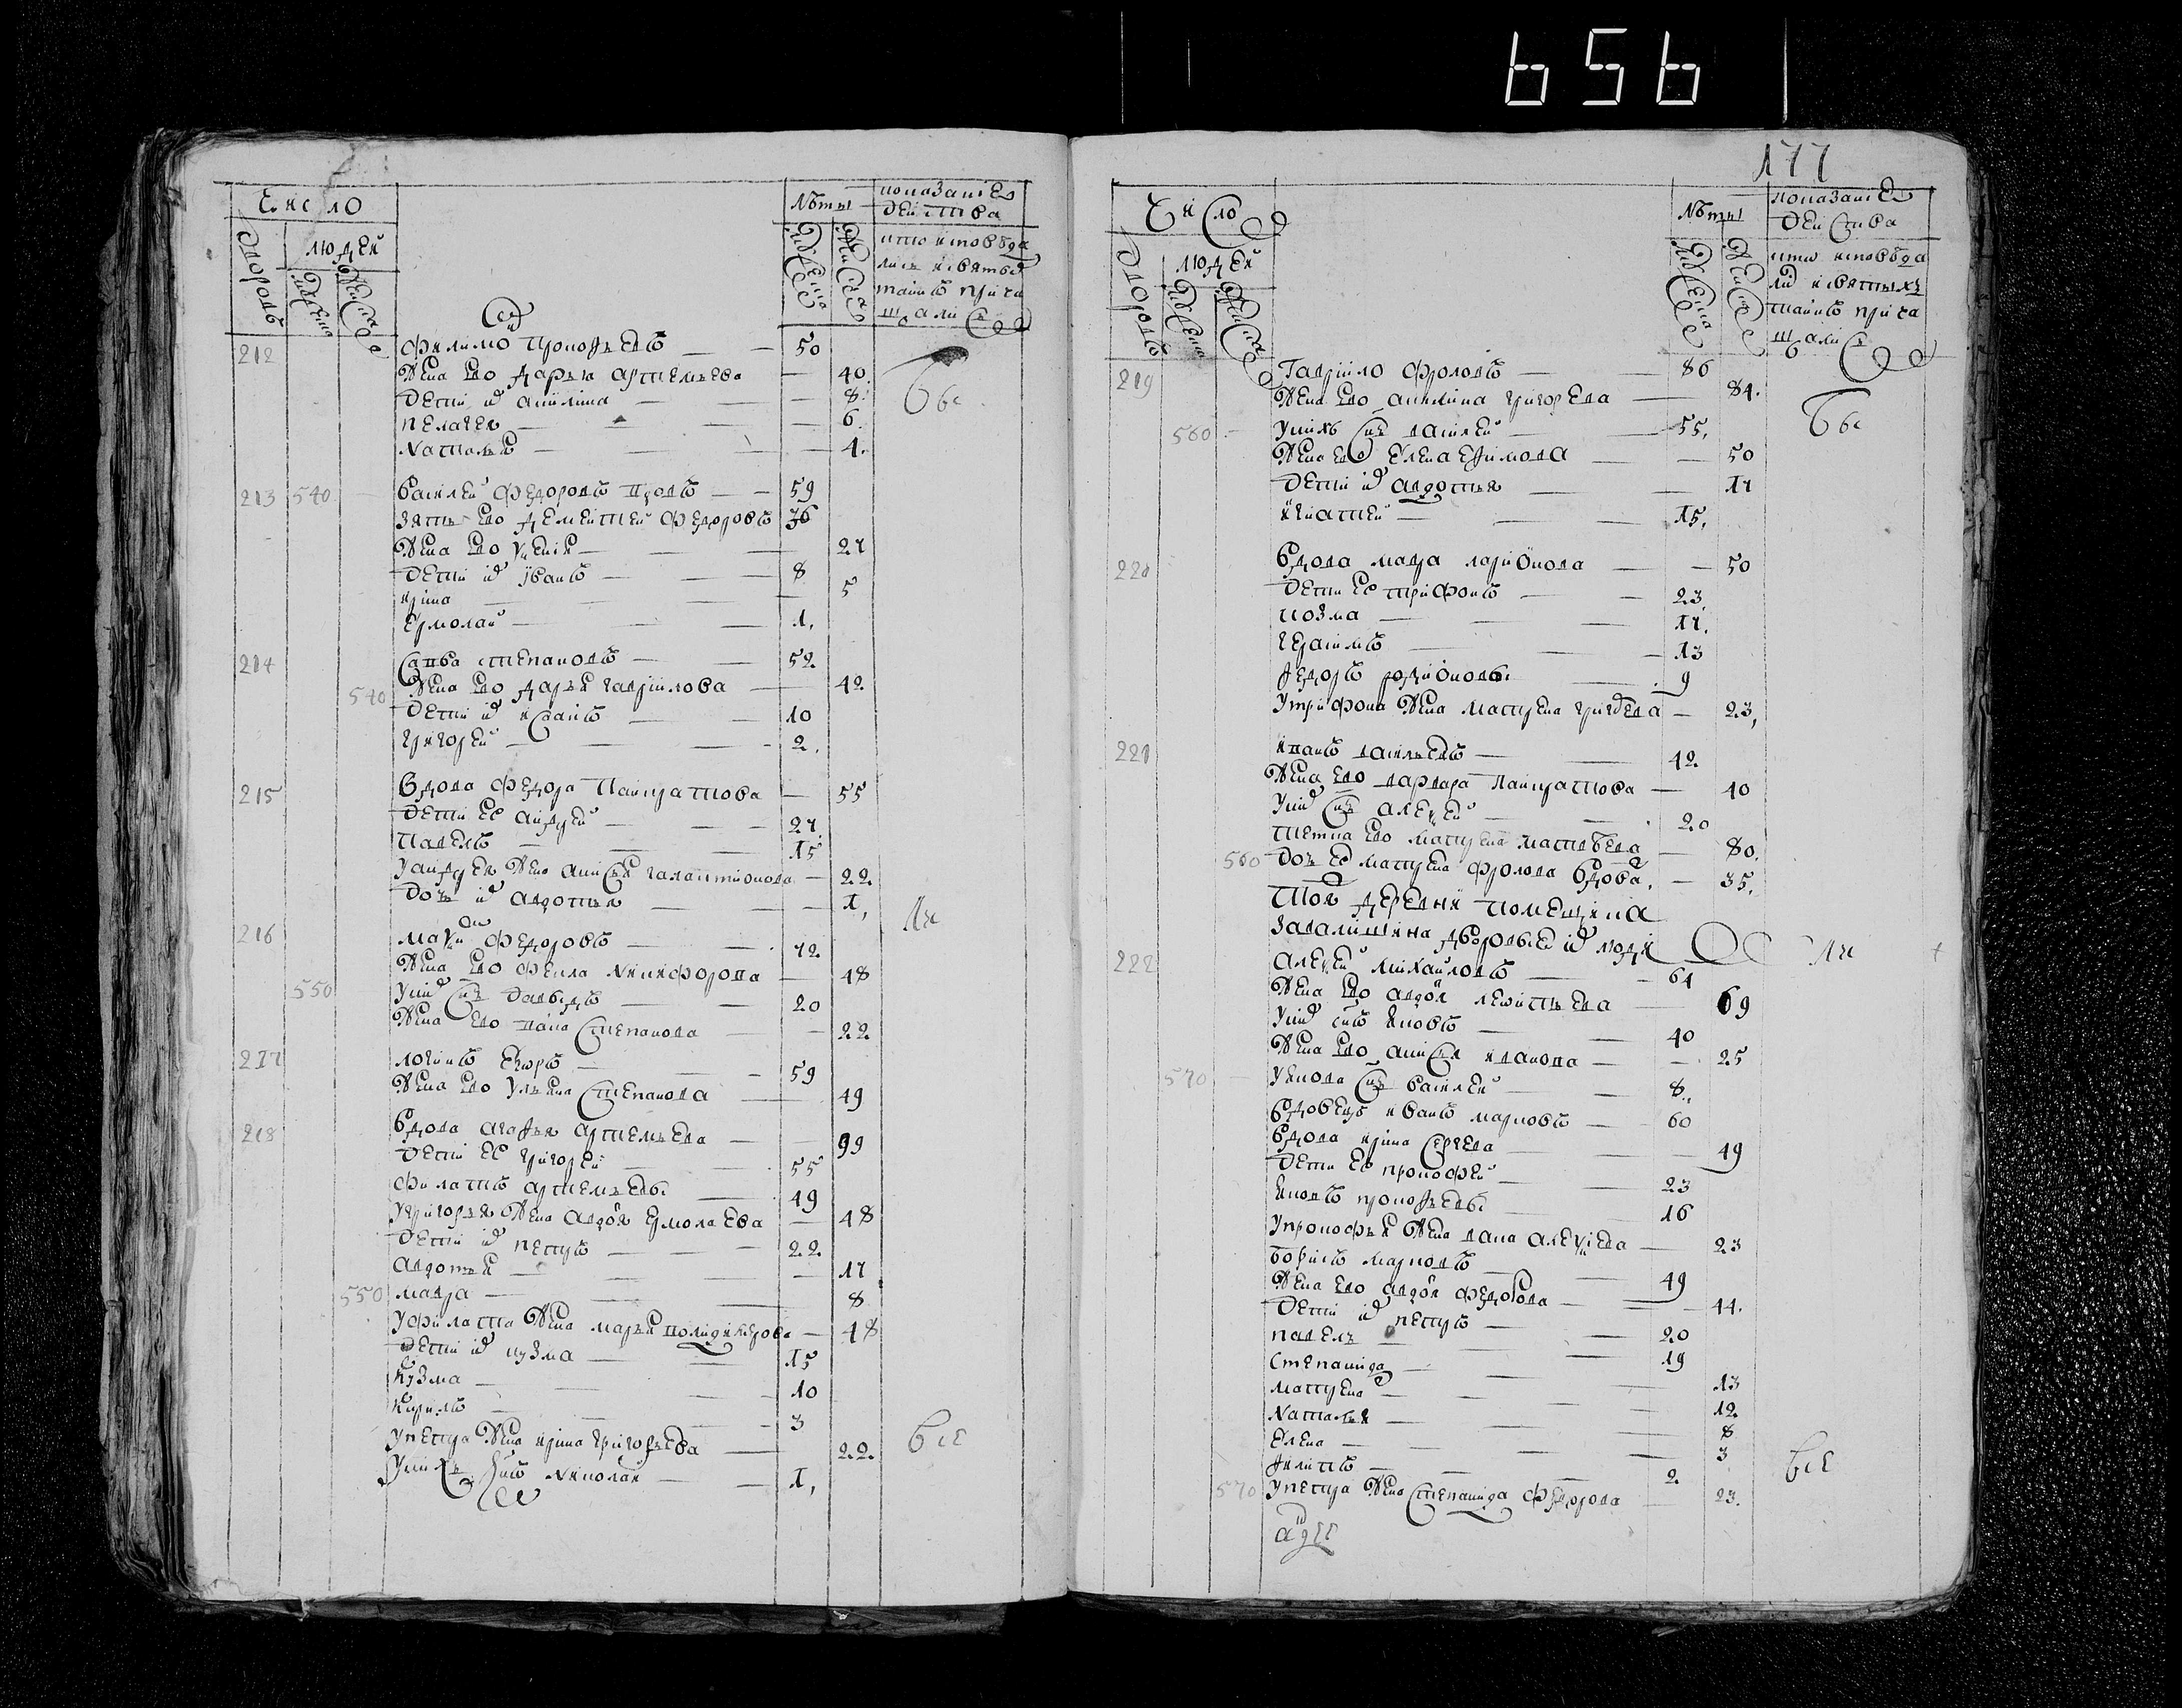 656
число
дворовъ
людей
мужеска
женска
лѣты
мужеска
женска
показание
действа
кто исповѣда
лись и святых
таинъ прича
щалис
212 Филимо Прокофьевъ 50
Жена ево Дарья Артемьева 40.
Дети их Акилина 8.
Пелагея 6.
Наталья 4.
Все
213 540 Василей Федоровъ вдовъ 59
Зять ево Дементей Федоровъ 36
Жена ево 27
Дети их Иванъ 8
Ирина 5
Ермолай 1.
214 Савва Степановъ 52
540 Жена ево Дарья Гаврилова 42
Дети их Иванъ 10
Григорей 2.
215 Вдова Федора Панкратова 55
Дети ее Андрей 27
Павелъ 15
У Андрея жена Анисья Галактионова 22
Дочь их Авдотья 1.
216 Федоровъ 72
Жена ево Фекла Никифорова 48
550 У них снъ Давыдъ 20
Жена ево Степанова 22
217 Логинъ 59
Жена ево Ульяна Степанова 49
218 Вдова Агафья Артемьева 99
Дети ее Григорей 55
Филатъ Артемьевы 49
У Григорья жена Авдоя Ермолаева 48
Дети их Петръ 22
Авдотья 17
550 Мавра 8
У Филата жена Марья Поликарпова 48
Дети их Кузма 15
Кузма 10
Кирилъ 3
У Петра жена Ирина Григорьева 22
У них снъ Николай 1.
все
177
Число
дворовъ
людей
мужеска
женска
лѣты
мужеска
женска
показание
действа
кто исповѣда
ли и святыхъ
таинъ прича
щалис
219 Гаврило Фроловъ 86
Жена ево Акилина Григорева 84.
560 У нихъ снъ Василей 55.
Жена ево Елена Ефимова 50
Дети их Авдотья 17
Игнатей 15.
Все
220 Вдова Мавра Ларионова 50
Дети ее Трифонъ 23.
Козма 17.
Герасимъ 13
Федоръ Родионовы 9
У Трифона жена Матрена 23.
221 Иванъ Васильевъ 42
Жена ево Варвара Панкратова 40
У них снъ Алексей 20
Тетка ево Матрена Матвѣева 80.
560 Дочь ее Матрена Фролова вдова. 35.
Той деревни помещика
дворовые их люди
222 Алексей Михайловъ 61
Жена ево Авдоя Леонтьева 69
У них снъ Яковъ 40
Жена ево Анисья Иванова 25
570 У Якова снъ Василей 8.
Вдовецъ Иванъ Марковъ 60
Вдова Ирина Сергева 49
Дети ее Прокофей 23
Яковъ Прокофьевы 16
У Прокофья жена Алексиева 23
Борисъ Марковъ 49
Жена ево Авдоя Федорова 44.
Дети их Петръ 20
Павелъ 19
Степанида 13
Матрена 12
Наталья 8
Елена 3
Филипъ 2
570 У Петра жена Степанида Федорова 23.
все